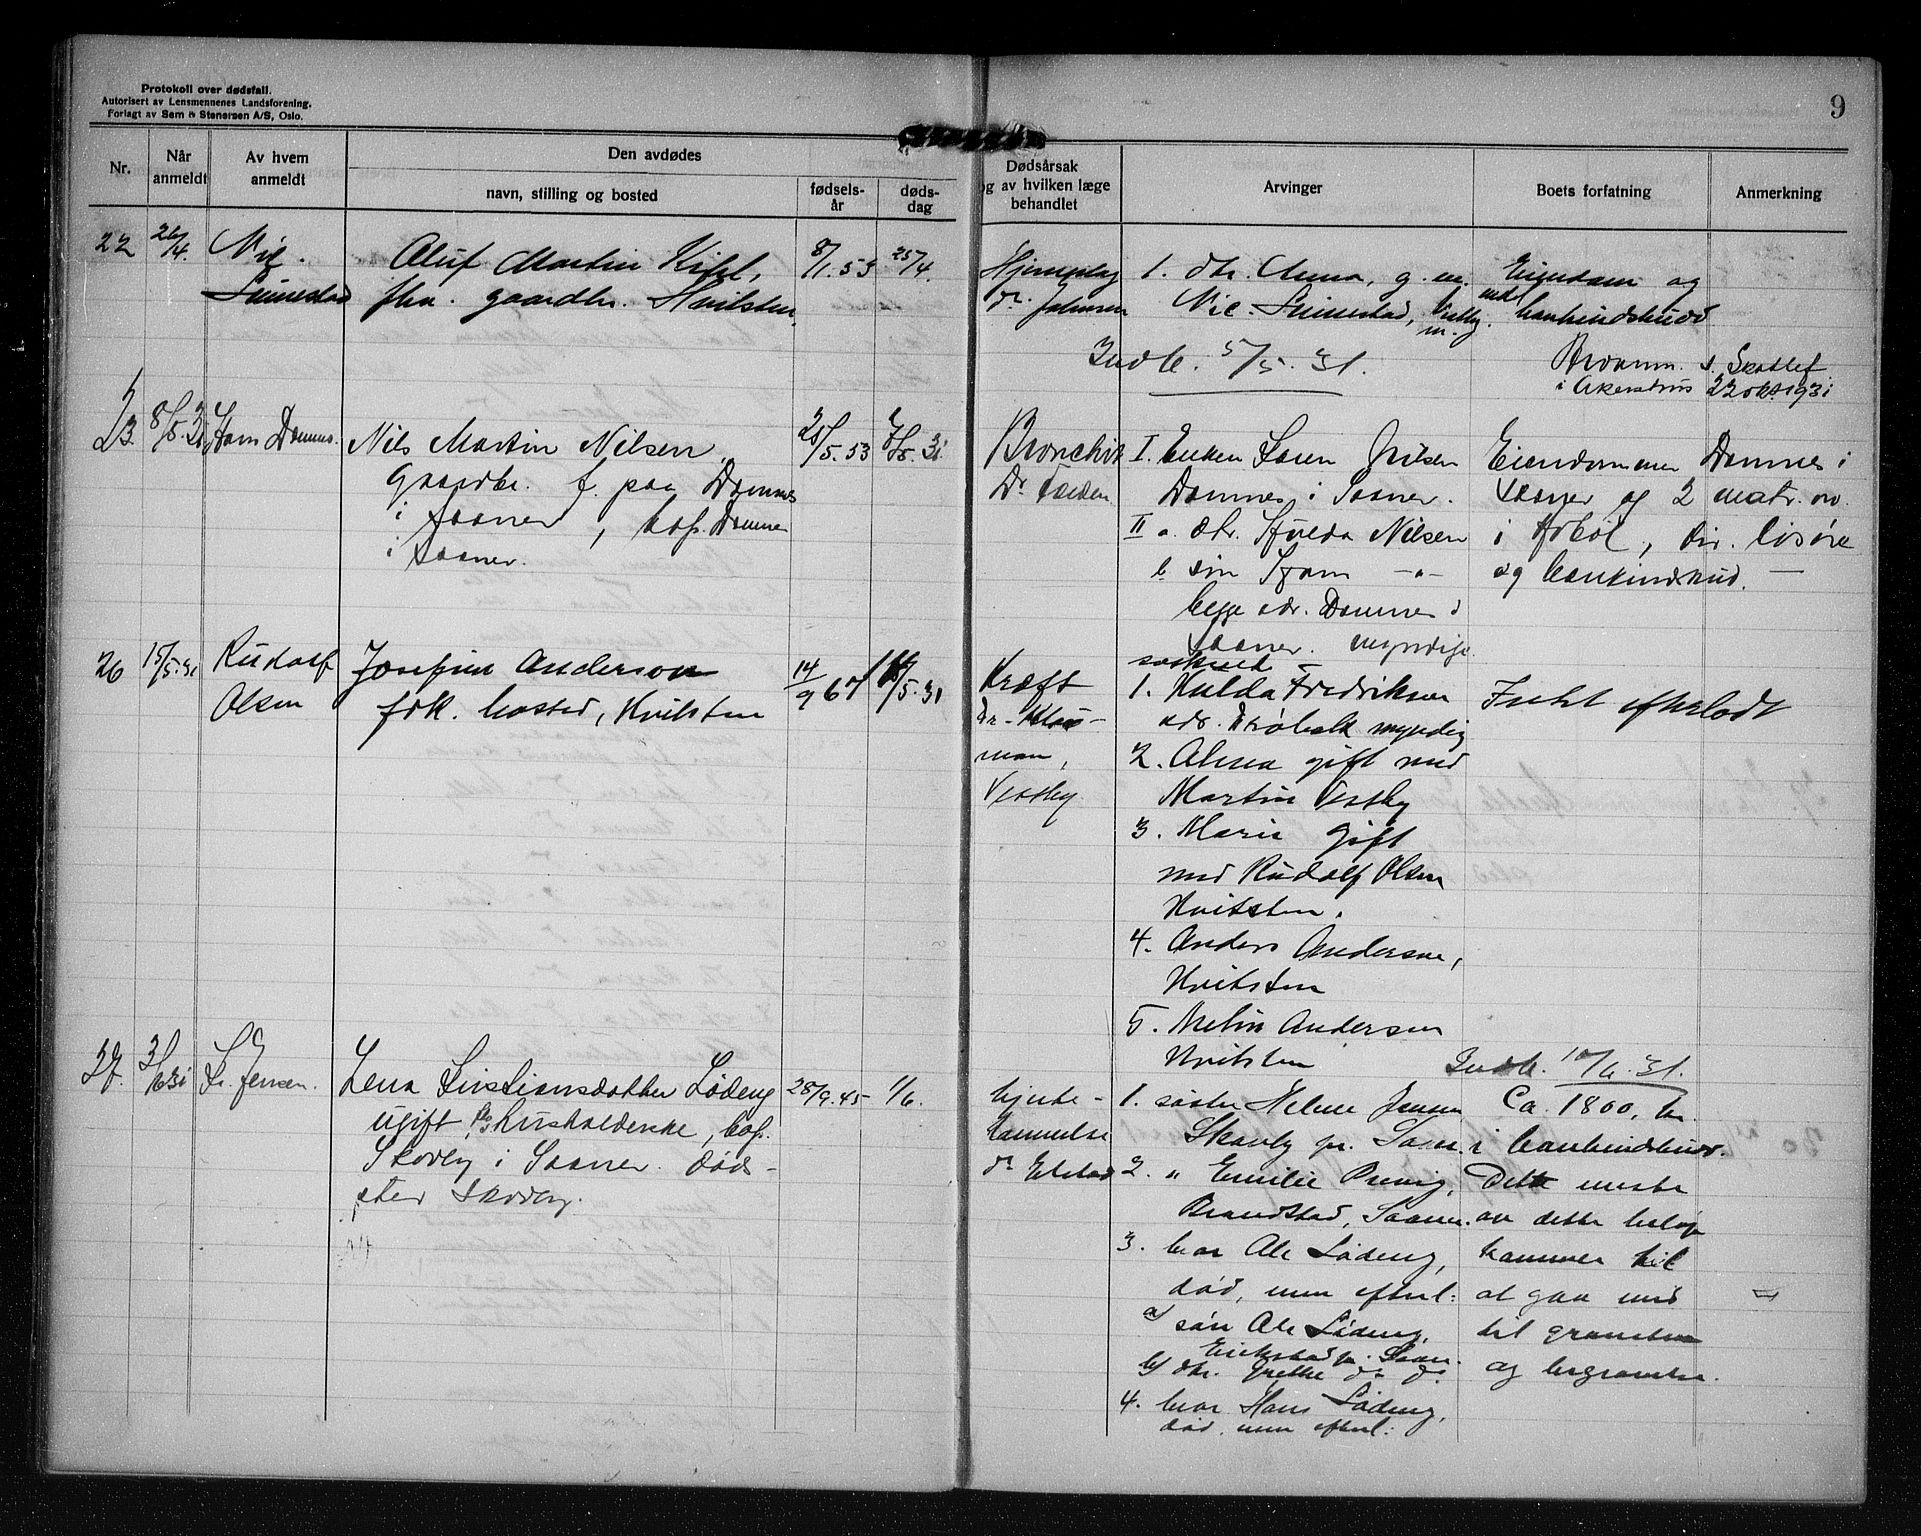 Protokoll over dødsfall.
Autorisert av Lensmennenes Landsforening.
Forlagt av Sem & Stenersen A/S, Oslo.
9
Nr.
Når anmeldt
Av hvem anmeldt
Den avdødes
navn, stilling og bosted
fødsels-år
døds-dag
Dødsårsak
og av hvilken læge
behandlet
Arvinger
Boets forfatning
Anmerkning
22
26/4.
Nic.
Sunestad
Oluf Martin
fhv. gaardbr. Hvitsten.
8/1.53
25/4.
Hjerneslag
dr. Johnsen
1. dtr. Anna, g. m.
Nic. Sunestad,
Eiendom og
bankindskudd
Indb. 5/5.31.
i Akershus 22 okt 1931
23.
8/5.31
Ham Damnes.
Nils Martin Nilsen.
Gaardbr. f. paa Damnes
i Saaner, bop. Damnes
i Saaner.
25/5.53
7/5.31
Bronchit
Dr
I. Enken Karen Nilsen
Damnes i Saaner.
II a. dtr. Hulda Nilsen
b. søn Ham -"-
begge adr. Damnes i
Saaner. myndige.
Eiendommen Damnes i
Saaner og 2 matr. nr.
i Hobøl, div. løsøre
og bankindskud. —
26
15/5.31
Rudolf
Olsen
Josefine Anderson
frk. bosted, Hvitsten
14/9 67
5.31
Kræft
Dr. Klou-
man,
Vestby.
søskend
1. Hulda Fredriksen
adr. Drøbak myndig
2. Alma gift med
Martin Vestby
3. Marie gift
med Rudolf Olsen
Hvitsten.
4. Anders Andersen,
Hvitsten
5. Melin Andersen
Hvitsten
Intet efterladt
Indb. 10/6.31.
27.
3/6 31
Kr. Jensen.
Lena Kristiansdatter Lødeng
ugift, fhv. husholderske, bop.
Skovby i Saaner. Død-
sted Skovby.
28/9.45
1/6.
hjerte-
lammelse
dr Elstad
1. søster Helene Jensen
Skovby pr. Saaner.
2. " Emilie
Brandstad, Saaner.
3. bror Ole Lødeng,
død, men efterl:
a) søn Ole Lødeng,
Erikstad pr. Saaner.
b) dtr. Grethe do do.
4. bror Hans Lødeng,
død, men efterl:
Ca. 1800, kr.
i bankindskudd.
Dette meste
av dette beløp
kommer til
at gaa med
til gravsten
og begravelse.